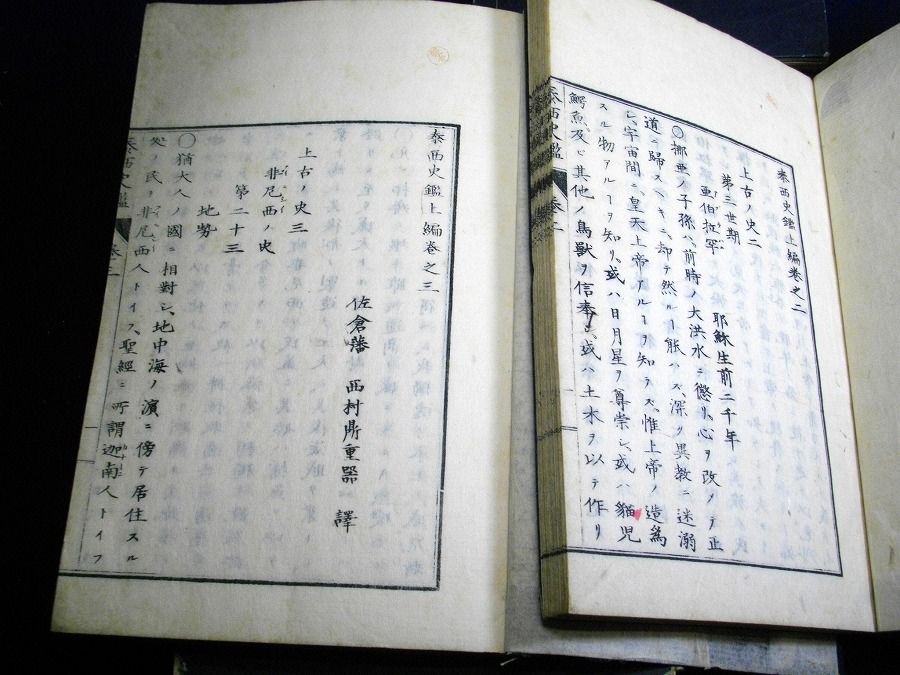 泰西史鑑上編巻之二
上古ノ史二
第三世期 耶穌生前二千年
亜伯拉罕
〇挪亜ノ子孫ハ、前時ノ大洪水ニ懲リ、心ヲ改メテ正
道ニ歸スヘキニ、却テ然ルヿ能ハス、深ク異教ニ迷溺
シ、宇宙間ニ、皇天上帝アルヿヲ知ラス、惟上帝ノ造爲
スル物アルヿヲ知リ、或ハ日月星ヲ尊崇シ、或ハ貓児
鰐魚及ヒ其他ノ鳥獣ヲ信奉シ、或ハ土木ヲ以テ作リ
泰西史鑑 巻二
泰西史鑑上編巻之三
佐倉藩 西村鼎重器 譯
上古ノ史三
非尼西ノ史
第二十三
地勢
〇猶太人ノ國ニ相對シ、地中海ノ濱ニ傍テ居住スル
ノ民ヲ、非尼西人トイフ、聖經ニ所謂迦南人トイフ
泰西史鑑 巻三